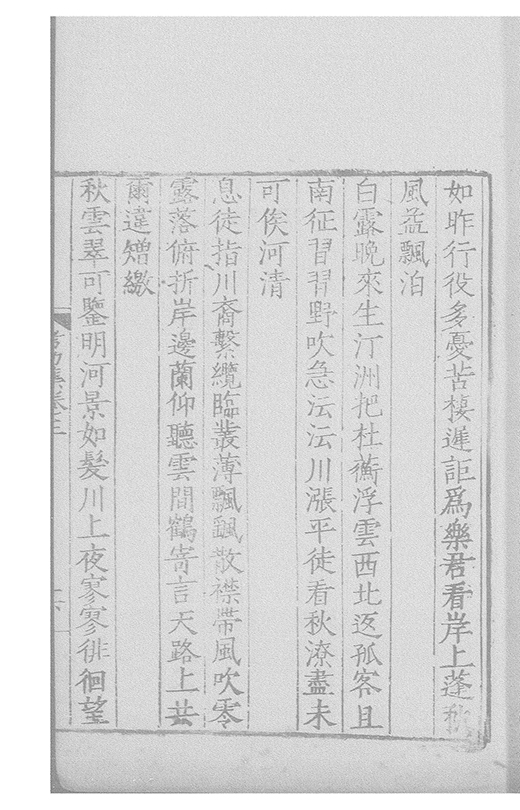 如昨行役多憂苦棲遲詎爲樂君看岸上蓬秋
風孟飄泊
白露晚來生汀洲把杜蘅浮雲西北返孤客且
南征習習野吹急沄沄川漲平徒看秋潦盡未
可俟河清
息徒指川裔繫纜臨叢薄飄颻散襟帶風吹零
露落俯折岸邊蘭仰聽雲間鶴寄言天路上共
爾違矰繳
秋雲翠可鑒明河景如髮川上夜寥寥徘徊望
集卷三